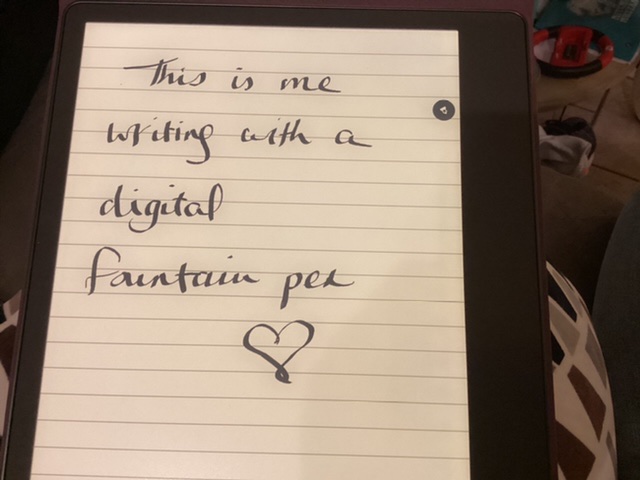 This is me
writing with a
digital
fountain pen